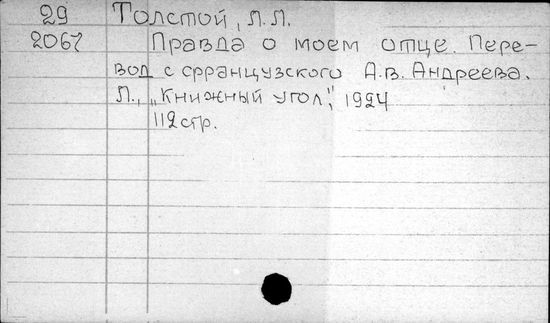 29 Толстой, Л.Л.
2067 Правда о моем отце. Пере-
вод с французского А.В. Андреева.
Л., „Книжный угол”, 1924
112 стр.